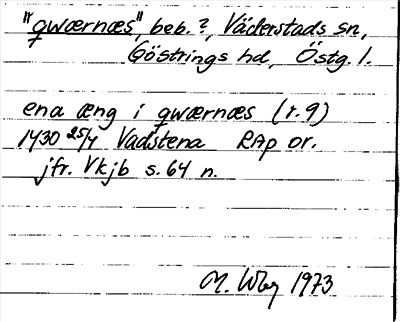 "qwærnæs", beb.?, Väderstads sn,
Göstrings hd, Östg. l.
ena æng i qwærnæs (r. 9)
1430 25/4 Vadstena RAp or.
jfr. Vkjb s. 64 n.
M. Wbg 1973